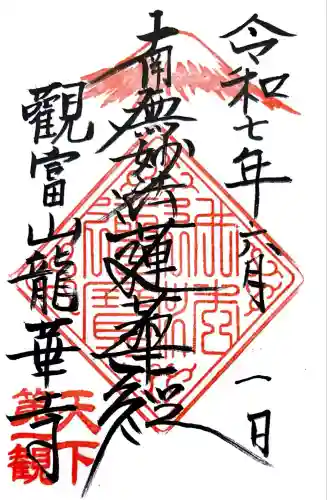 令和七年六月一日
南無妙法蓮華経
觀富山龍華寺
天下
第一觀